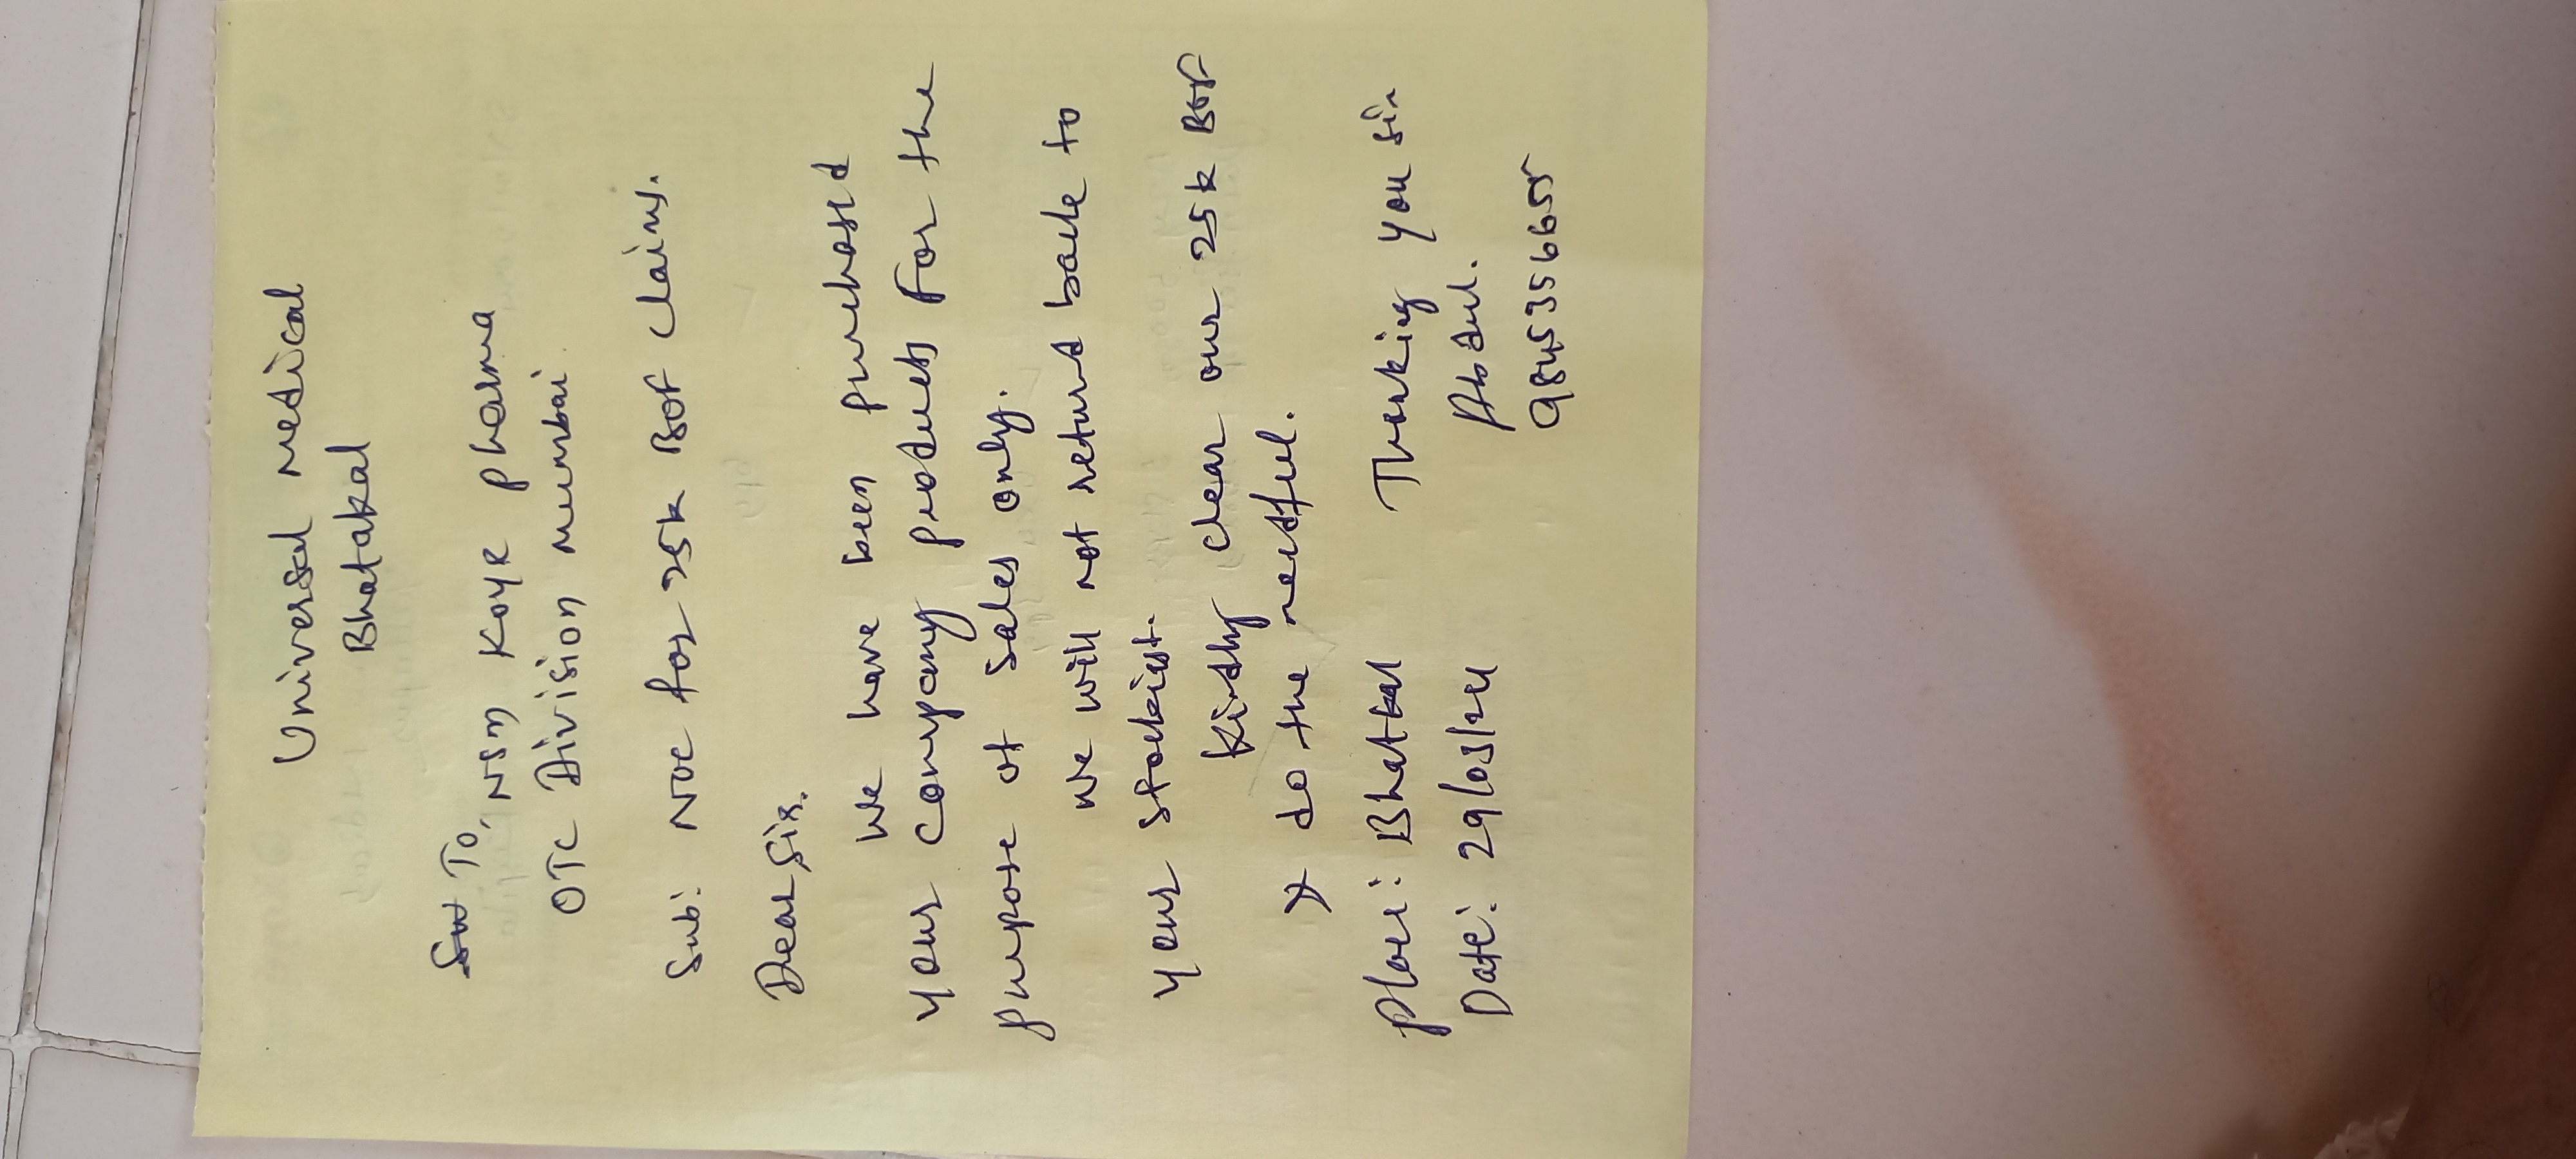 Universal medical
Bhatakal
To,
NSM KOYE pharma
OTC Division mumbai.
Sub: NOC for 25k BOF claims.
Dear Sir.
We have been purchased
your company products For the
purpose of sales only.
we will not return back to
your stockist.
Kindly clear our 25k BOF
& do the needful.
place: Bhatkal Thanking you sir
Abdul.
Date: 29/03/24
9845356655